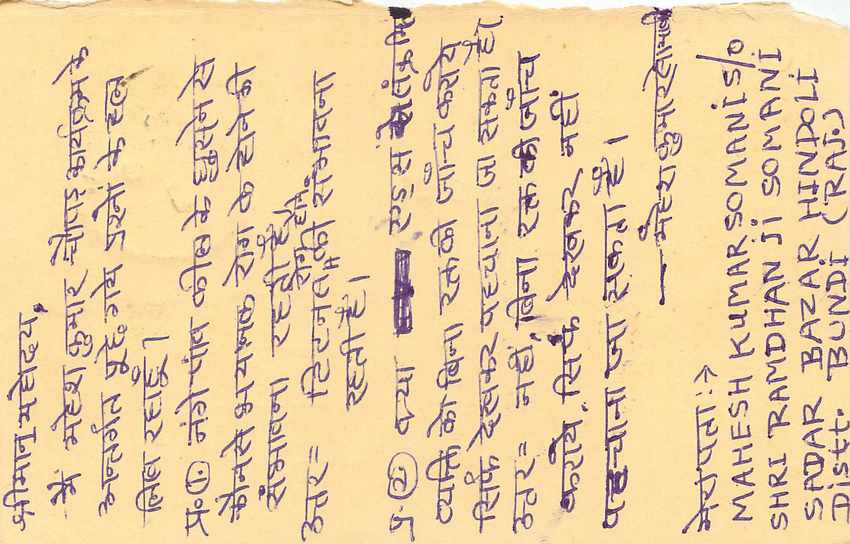 श्रीमान् महोदय,
मैं महेश कुमार चौपड़ कार्यक्रम के
अन्तर्गत पूछे गये प्रश्नो के हल
लिख रहा हूँ।
प्र.① नंगे पांव कील के चुभने से
कौनसे भयानक रोग के होने की
संभावना रहती है।
उत्तर= टिटनस रोग होने की संभावना
रहती है।
प्र.② क्या एड्स संक्रमित
व्यक्ति को बिना रक्त की जाँच कराये
सिर्फ देखकर पहचाना जा सकता है।
उत्तर= नहीं, बिना रक्त की जाँच
कराये, सिर्फ देखकर नहीं
पहचाना जा सकता है।
— महेश कुमार सोमानी
मेरा पता:→
MAHESH KUMAR SOMANI S/O
SHRI RAMDHAN JI SOMANI
SADAR BAZAR HINDOLI
Distt. BUNDI (RAJ.)